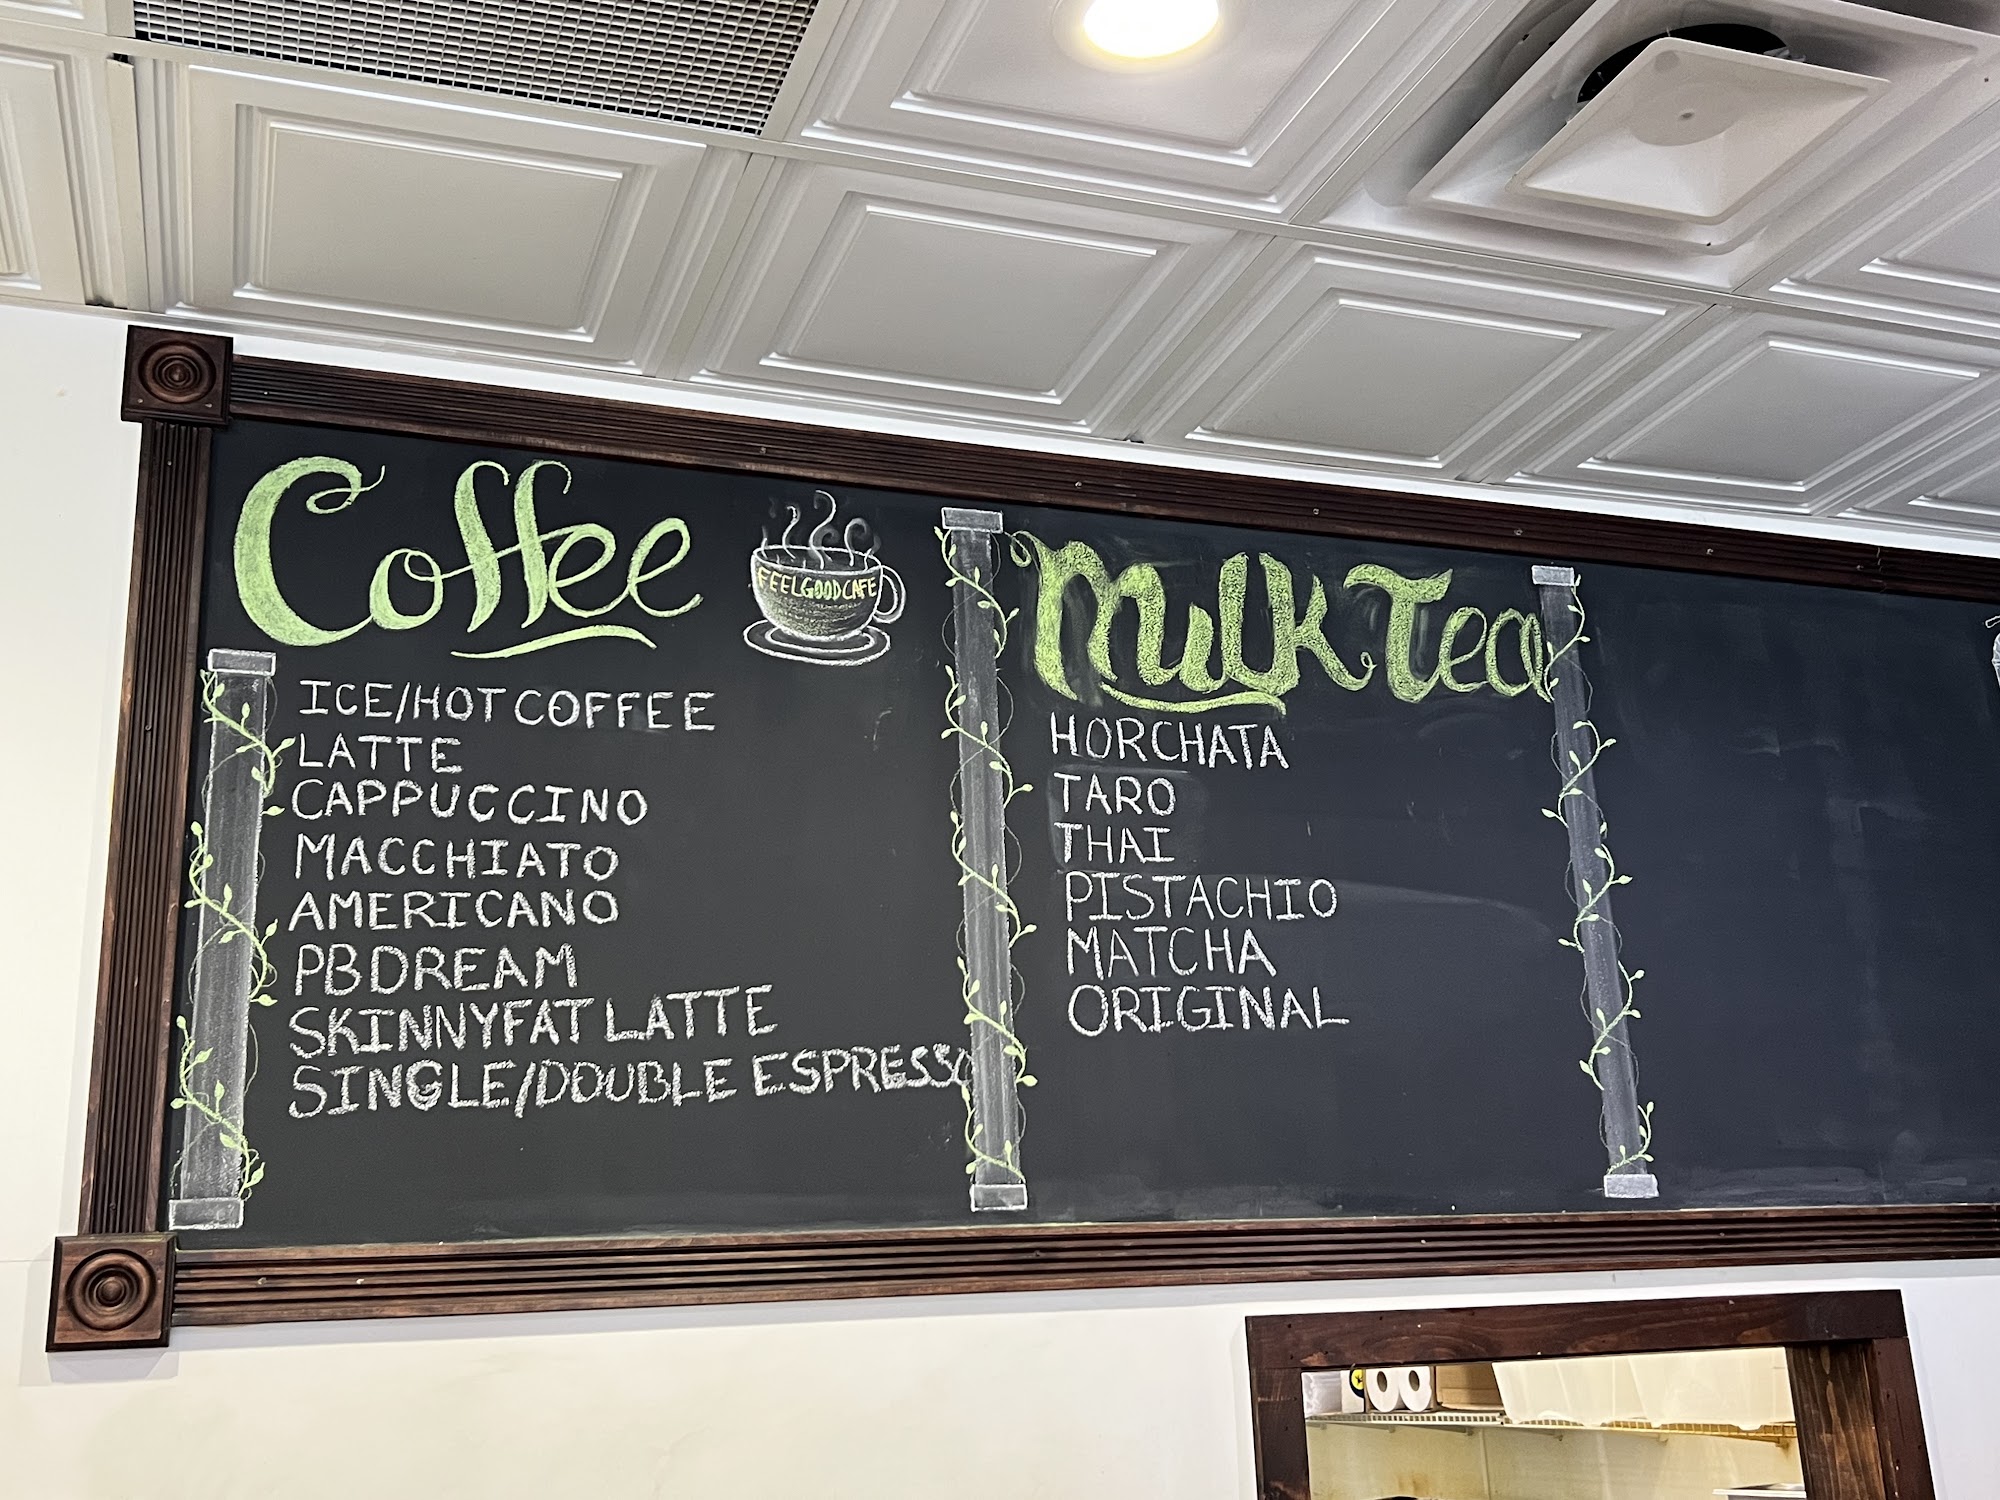 Coffee
FEELGOODCAFE
ICE/HOT COFFEE
LATTE
CAPPUCCINO
MACCHIATO
AMERICANO
PB DREAM
SKINNYFAT LATTE
SINGLE/DOUBLE ESPRESSO
Milk Tea
HORCHATA
TARO
THAI
PISTACHIO
MATCHA
ORIGINAL